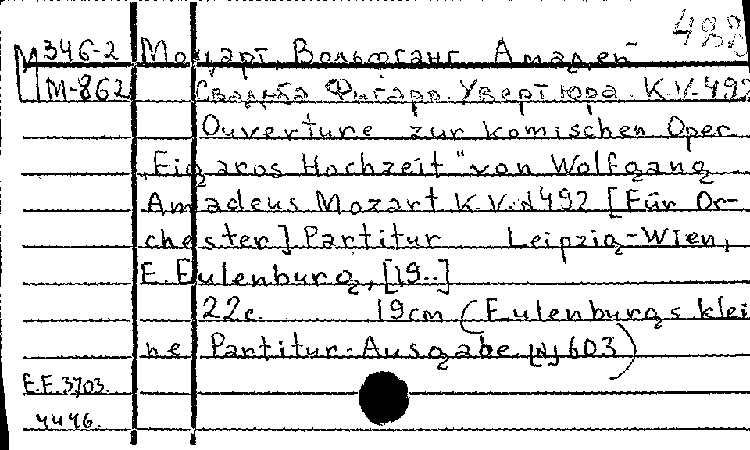 492
М 346-2 Моцарт, Вольфганг Амадей
М-862 Свадьба Фигаро. Увертюра. K.V.492
Ouverture zur komischen Oper
„Figaros Hochzeit" von Wolfgang
Amadeus Mozart K.V.N492 [Für Or-
chester] Partitur Leipzig-Wien,
E. Eulenburg, [19..]
22c. 19cm (Eulenburgs klei
ne Partitur-Ausgabe [N] 603)
E.E. 3703.
4446.